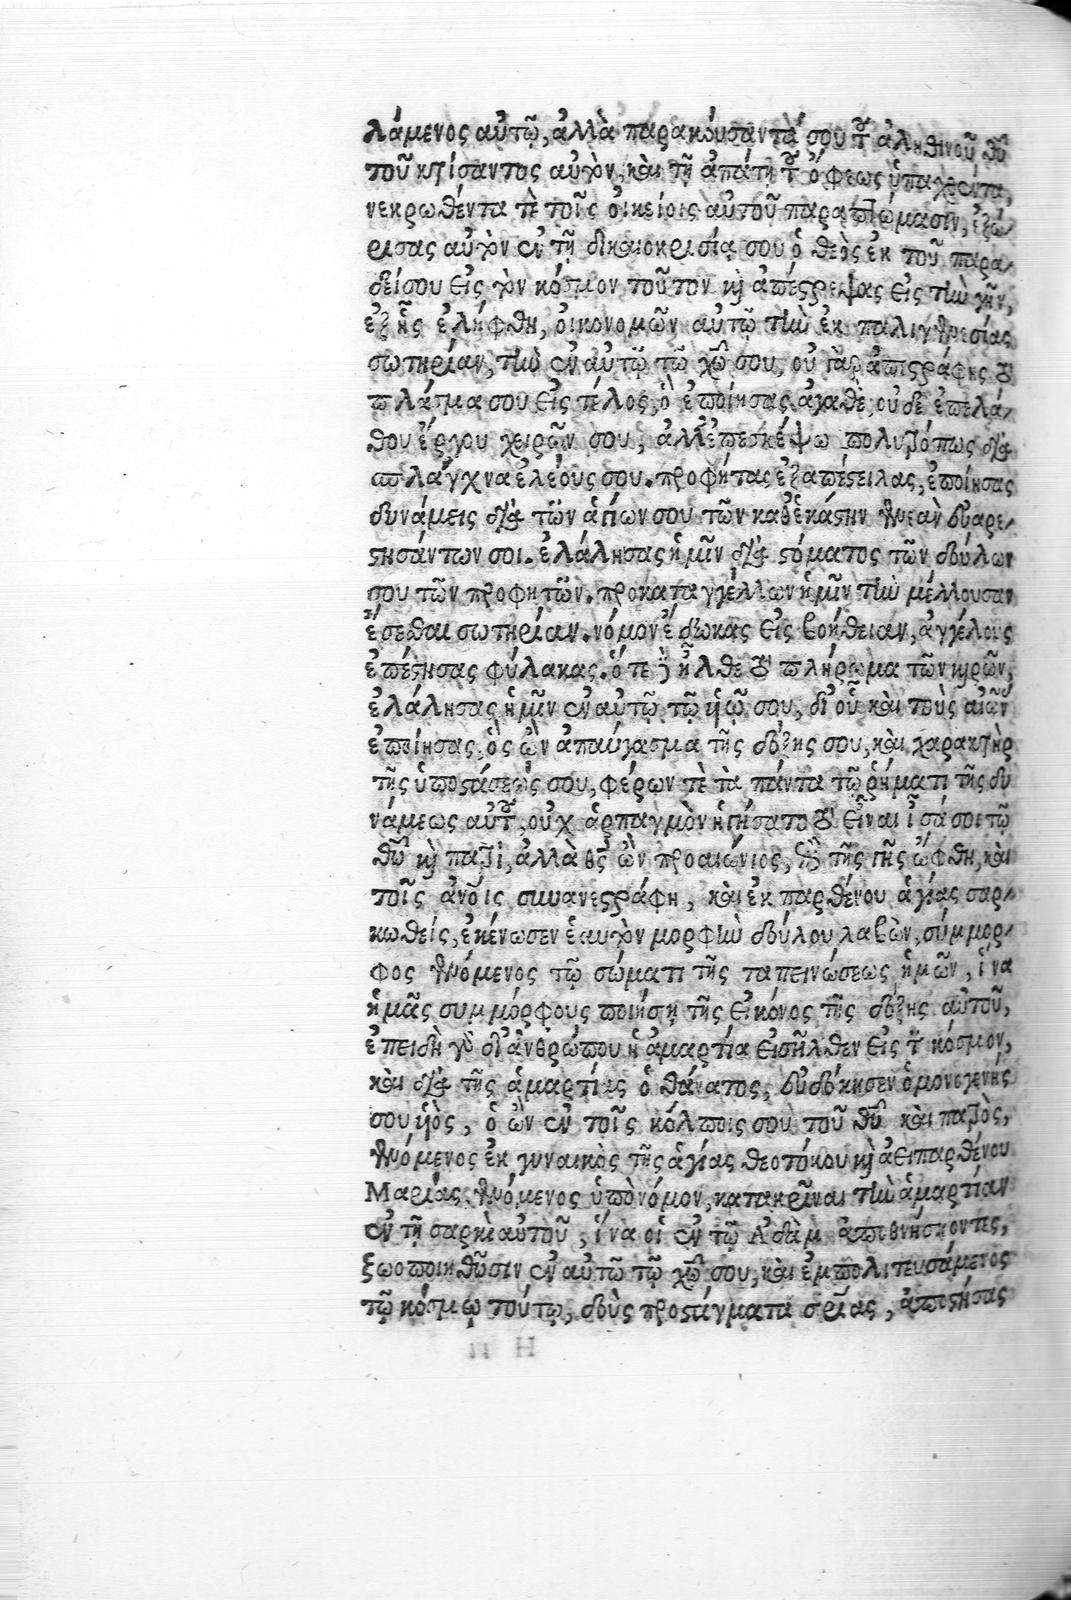 λάμενος αὐτῷ, ἀλλὰ παρακούσαντά σου τοῦ ἀληθινοῦ θῦ
τοῦ κτίσαντος αὐτὸν, καὶ τῇ ἀπάτῃ τοῦ ὄφεως ὑπαχθέντα,
νεκρωθέντα τὲ τοῖς οἰκείοις αὐτοῦ παραπτώμασιν, ἐξώ-
ρισας αὐτὸν ἐν τῇ δικαιοκρισίᾳ σου ὁ θεὸς ἐκ τοῦ παρα-
δείσου εἰς τὸν κόσμον τοῦτον καὶ ἀπέστρεψας εἰς τὴν γῆν,
ἐξ ἧς ἐλήφθη, οἰκονομῶν αὐτῷ τὴν ἐκ παλιγγενεσίας
σωτηρίαν, τὴν ἐν αὐτῷ τῷ χῷ σου, οὐ γὰρ ἀπεστράφης τὸ
πλάσμα σου εἰς τέλος, ὃ ἐποίησας ἀγαθὲ, οὐδὲ ἐπελά-
θου ἔργου χειρῶν σου, ἀλλ' ἐπεσκέψω πολυτρόπως διὰ
σπλάγχνα ἐλέους σου. προφήτας ἐξαπέστειλας, ἐποίησας
δυνάμεις διὰ τῶν ἁγίων σου τῶν καθ' ἑκάστην γενεὰν εὐαρε-
στησάντων σοι. ἐλάλησας ἡμῖν διὰ στόματος τῶν δούλων
σου τῶν προφητῶν. προκαταγγέλλων ἡμῖν τὴν μέλλουσαν
ἔσεσθαι σωτηρίαν. νόμον ἔδωκας εἰς βοήθειαν, ἀγγέλους
ἐπέστησας φύλακας. ὅτε δὲ ἦλθε τὸ πλήρωμα τῶν καιρῶν,
ἐλάλησας ἡμῖν ἐν αὐτῷ τῷ υἱῷ σου, δι' οὗ καὶ τοὺς αἰῶνας
ἐποίησας, ὃς ὢν ἀπαύγασμα τῆς δόξης σου, καὶ χαρακτὴρ
τῆς ὑποστάσεώς σου, φέρων τὲ τὰ πάντα τῷ ῥήματι τῆς δυ
νάμεως αὐτοῦ, οὐχ ἁρπαγμὸν ἡγήσατο τὸ εἶναι ἴσά σοι τῷ
θῷ καὶ πατρὶ, ἀλλὰ θς ὢν προαιώνιος, ἐπὶ τῆς γῆς ὤφθη, καὶ
τοῖς ἀνοις συνανεστράφη, καὶ ἐκ παρθένου ἁγίας σαρ-
κωθείς, ἐκένωσεν ἑαυτὸν μορφὴν δούλου λαβὼν, σύμμορ-
φος γενόμενος τῷ σώματι τῆς ταπεινώσεως ἡμῶν, ἵνα
ἡμᾶς συμμόρφους ποιήσῃ τῆς εἰκόνος τῆς δόξης αὐτοῦ,
ἐπειδὴ γὰρ δι' ἀνθρώπου ἡ ἁμαρτία εἰσῆλθεν εἰς τὸν κόσμον,
καὶ διὰ τῆς ἁμαρτίας ὁ θάνατος, εὐδόκησεν ὁ μονογενής
σου υἱὸς, ὁ ὢν ἐν τοῖς κόλποις σοῦ τοῦ θῦ καὶ πατρὸς,
γενόμενος ἐκ γυναικὸς τῆς ἁγίας θεοτόκου καὶ ἀειπαρθένου
Μαρίας, γενόμενος ὑπὸ νόμον, κατακρῖναι τὴν ἁμαρτίαν
ἐν τῇ σαρκὶ αὐτοῦ, ἵνα οἱ ἐν τῷ Ἀδὰμ ἀποθνήσκοντες,
ζωοποιηθῶσιν ἐν αὐτῷ τῷ χῷ σου, καὶ ἐμπολιτευσάμενος
τῷ κόσμῳ τούτῳ, δοὺς προστάγματα σρίας, ἀποστήσας